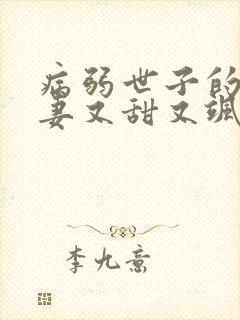 病弱世子的
妻又甜又飒
李九意